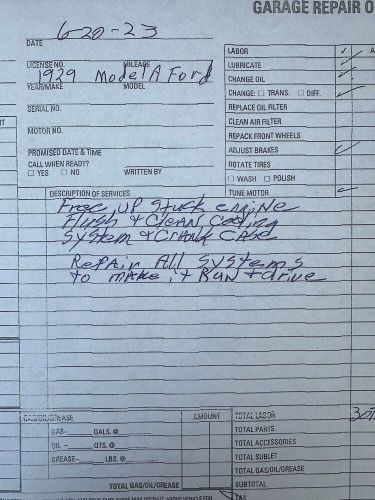 GARAGE REPAIR O
DATE 6-20-23
LICENSE NO. MILEAGE
1929 Model A Ford
YEAR/MAKE MODEL
SERIAL NO.
MOTOR NO.
PROMISED DATE & TIME
CALL WHEN READY?
☐ YES ☐ NO WRITTEN BY
LABOR ✓ A
LUBRICATE ✓
CHANGE OIL ✓
CHANGE: ☐ TRANS. ☐ DIFF. ✓
REPLACE OIL FILTER
CLEAN AIR FILTER
REPACK FRONT WHEELS
ADJUST BRAKES ✓
ROTATE TIRES
☐ WASH ☐ POLISH
TUNE MOTOR ✓
DESCRIPTION OF SERVICES
Free up stuck engine
Flush & Clean Cooling
System & Crank Case
Repair All Systems
to make it Run & drive
GAS/OIL/GREASE AMOUNT
GAS- GALS. @
OIL - QTS. @
GREASE- LBS. @
TOTAL GAS/OIL/GREASE
TOTAL LABOR
TOTAL PARTS
TOTAL ACCESSORIES
TOTAL SUBLET
TOTAL GAS/OIL/GREASE
SUBTOTAL
TAX